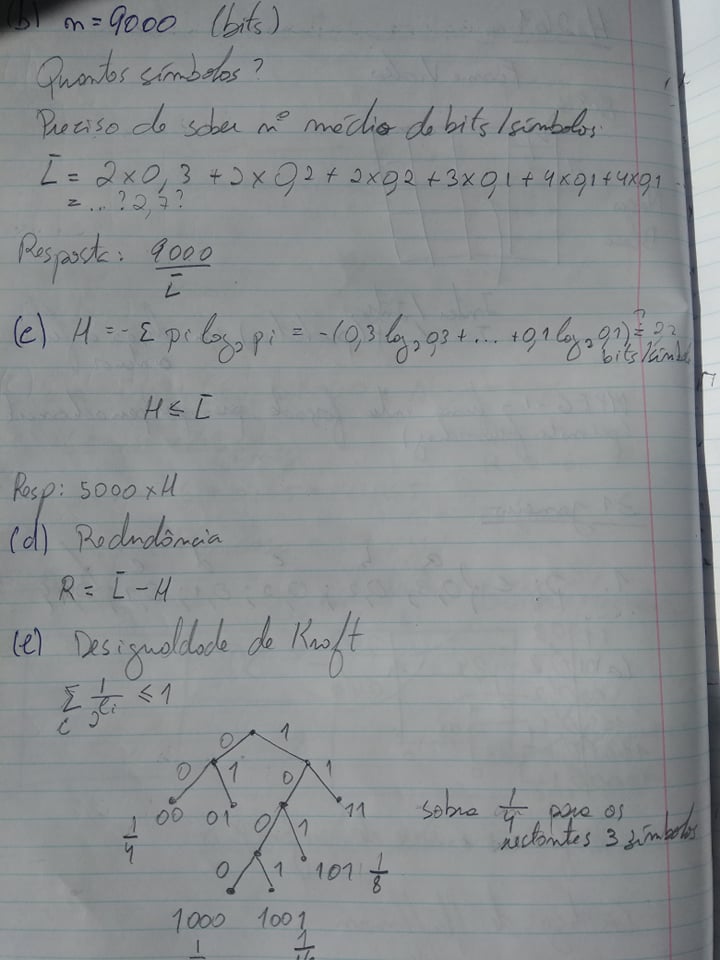 (b) n = 9000 (bits)
Quantos símbolos?
Preciso de saber nº médio de bits/símbolos.
L̄ = 2×0,3 + 2×0,2 + 2×0,2 + 3×0,1 + 4×0,1 + 4×0,1
= ...? 2,?
Resposta: 9000/L̄
(c) H = -Σ pi log₂ pi = -(0,3 log₂ 0,3 + ... + 0,1 log₂ 0,1) ?=
bits/símbolo
H ≤ L̄
Resp: 5000 × H
(d) Redundância
R = L̄ - H
(e) Desigualdade de Kraft
Σ_i 1/2^{ℓi} ≤ 1
0 1
0 1 0 1
00 01 0 1 11
sobra 1/4 para os
restantes 3 símbolos
1/4
0 1 101 1/8
1000 1001